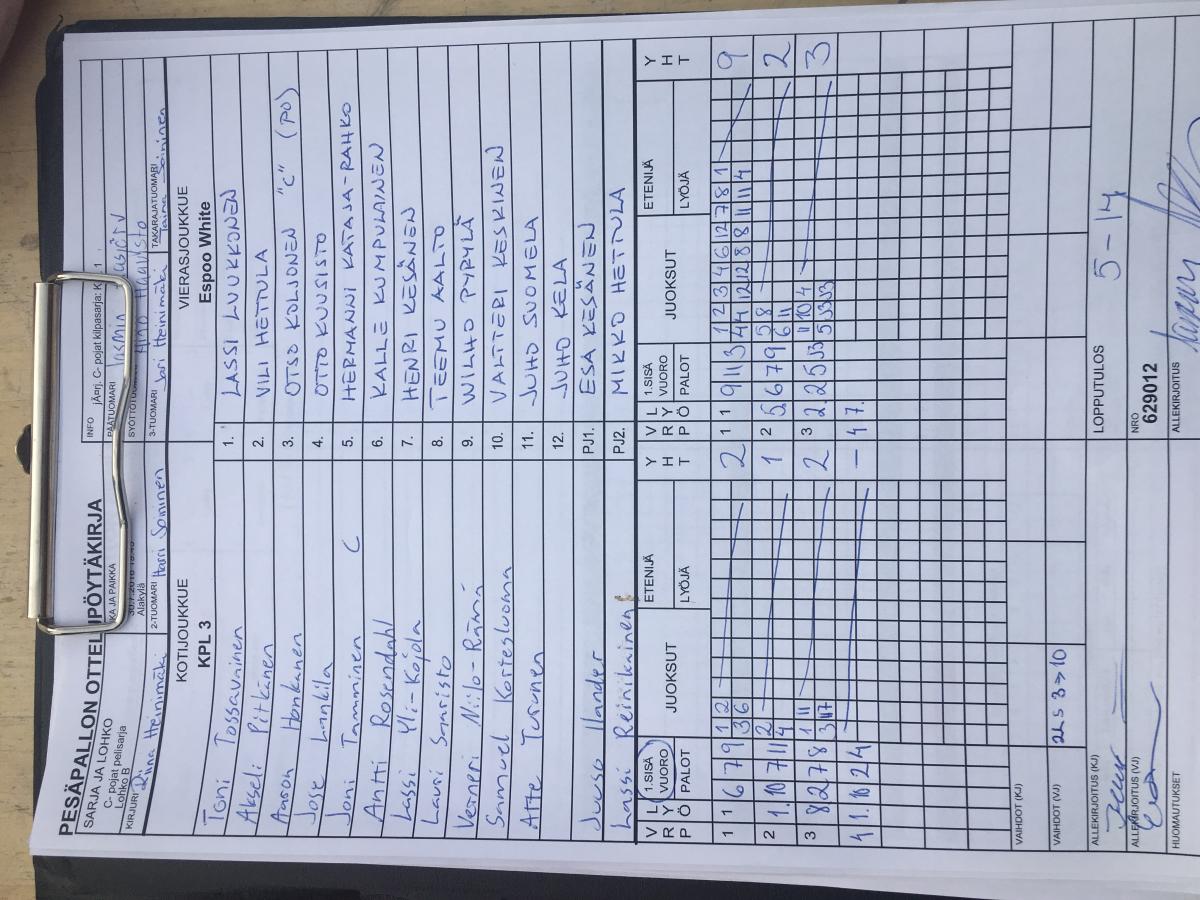 PESÄPALLON OTTELUPÖYTÄKIRJA
SARJA JA LOHKO
C- pojat pelisarja
Lohko B
KA JA PAIKKA
Alakylä
INFO jÄ=rj. C- pojat kilpasarja: K 1
PÄÄTUOMARI
KIRJURI Riina Heinimäki
2-TUOMARI Harri Soininen
3-TUOMARI Jari Heinimäki
TAKARAJATUOMARI Taina Soininen
KOTIJOUKKUE
KPL 3
VIERASJOUKKUE
Espoo White
Toni Tossavainen 1. LASSI LUUKKONEN
Akseli Pitkänen 2. VILI HETTULA
Aaron Honkanen 3. OTSO KOLJONEN "C" (PO)
Jose Lankila 4. OTTO KUUSISTO
Joni Tamminen C 5. HERMANNI KATAJA-RAHKO
Antti Rosendahl 6. KALLE KUMPULAINEN
Lassi Yli-Kojola 7. HENRI KESÄNEN
Lauri Saaristo 8. TEEMU AALTO
Verneri Niilo-Rämä 9. WILHO PYRYLÄ
Samuel Kortesluoma 10. VALTTERI KESKINEN
Atte Turunen 11. JUHO SUOMELA
12. JUHO KELA
Juuso Ilander PJ1. ESA KESÄNEN
Lassi Reinikainen PJ2. MIKKO HETTULA
V R P L Y Ö 1.SISÄ VUORO PALOT JUOKSUT ETENIJÄ LYÖJÄ Y H T V R P L Y Ö 1.SISÄ VUORO PALOT JUOKSUT ETENIJÄ LYÖJÄ Y H T
1 1 6 7 9 1 2 2 1 1 9 11 3 1 2 3 4 6 12 7 8 1 9
3 6 4 4 12 12 8 8 11 11 4
2 1. 10 7 11 2 1 2 5. 6 7 9 5 8 2
4 6 11
3 8 2 7 8 1 11 2 3 2. 2 5 11 10 4 3
4 1. 10 2 4 - 4 7.
VAIHDOT (KJ)
VAIHDOT (VJ) 2Ls 3→10
ALLEKIRJOITUS (KJ)
LOPPUTULOS 5 - 14
ALLEKIRJOITUS (VJ)
NRO
629012
HUOMAUTUKSET
ALLEKIRJOITUS